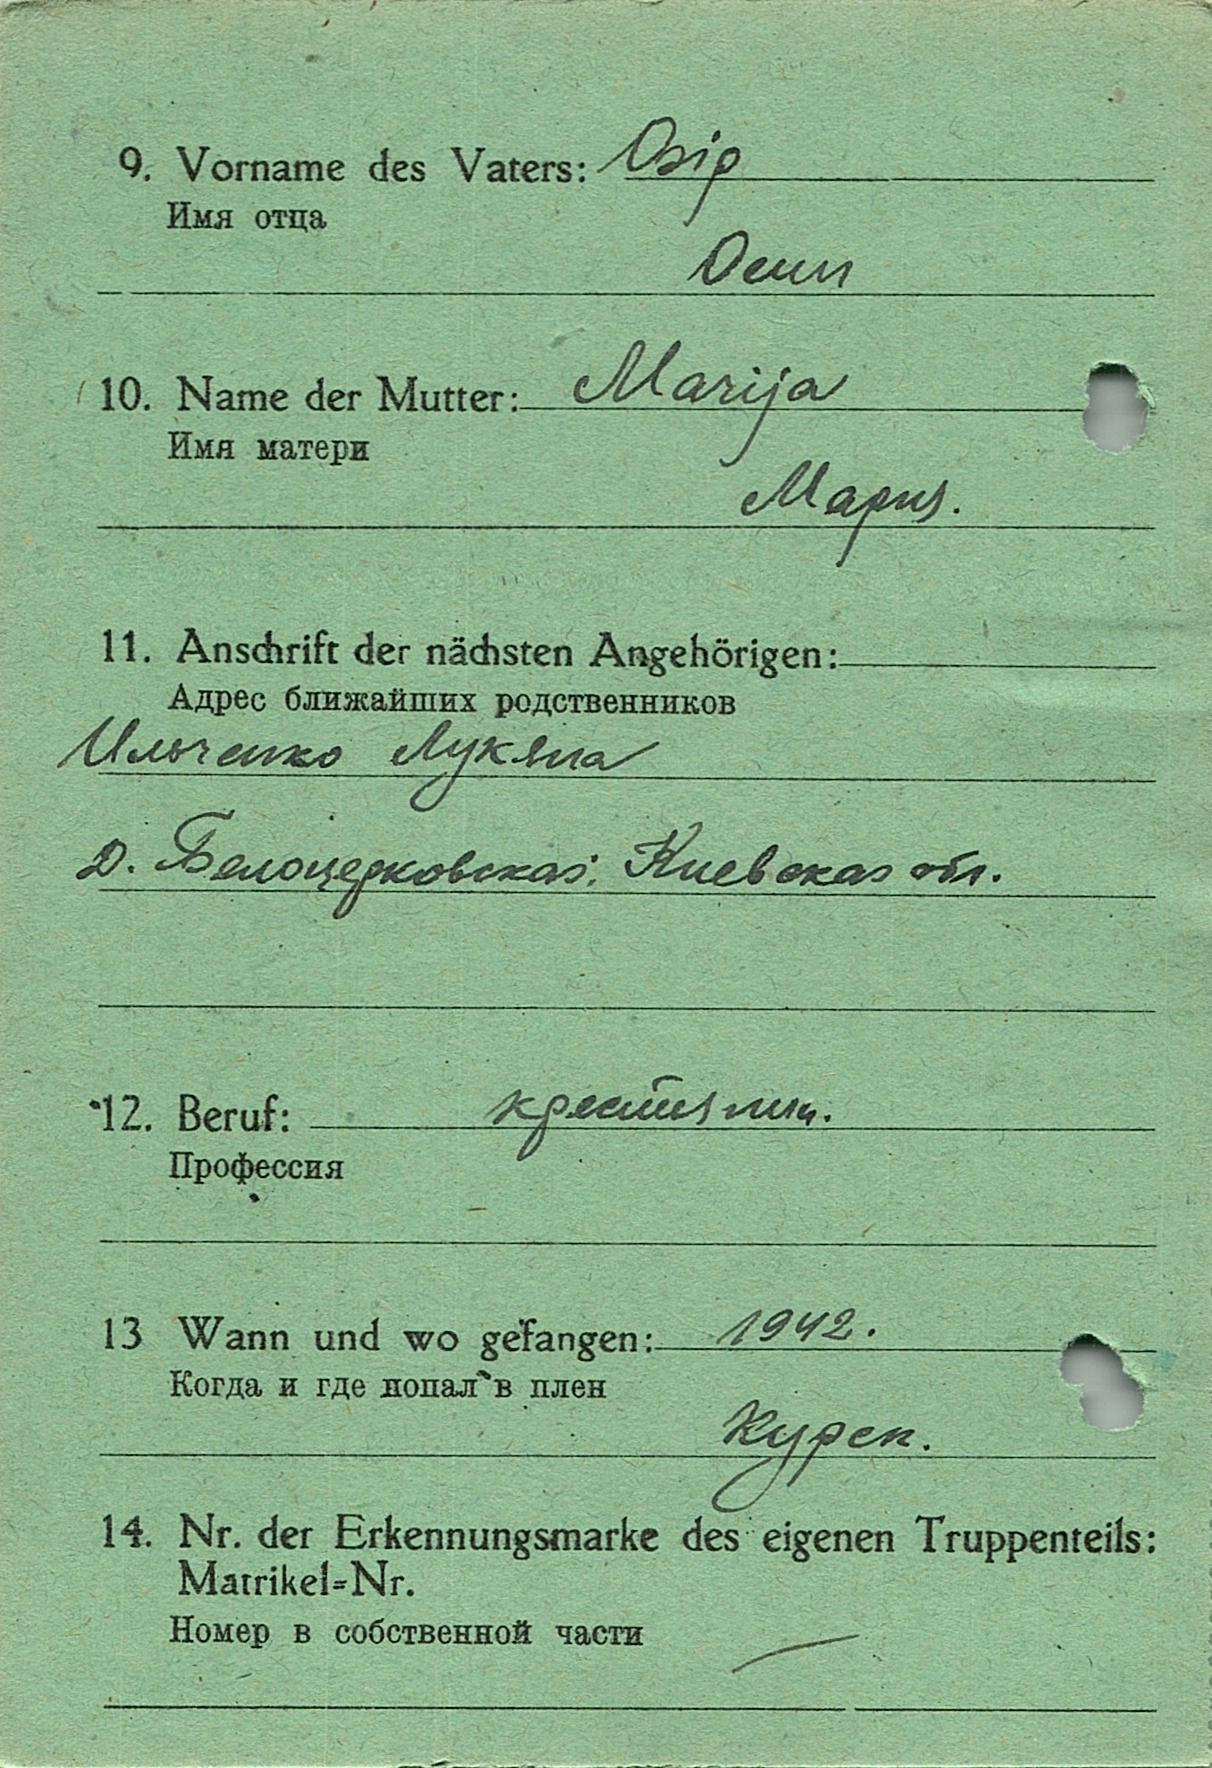 9. Vorname des Vaters: Osip
Имя отца
Осип
10. Name der Mutter: Marija
Имя матери
Мария.
11. Anschrift der nächsten Angehörigen:
Адрес ближайших родственников
Ильченко Лукяна
д. Белоцерковская, Киевская обл.
12. Beruf: крестянин.
Профессия
13 Wann und wo gefangen: 1942.
Когда и где попал в плен
Курск.
14. Nr. der Erkennungsmarke des eigenen Truppenteils:
Matrikel=Nr.
Номер в собственной части